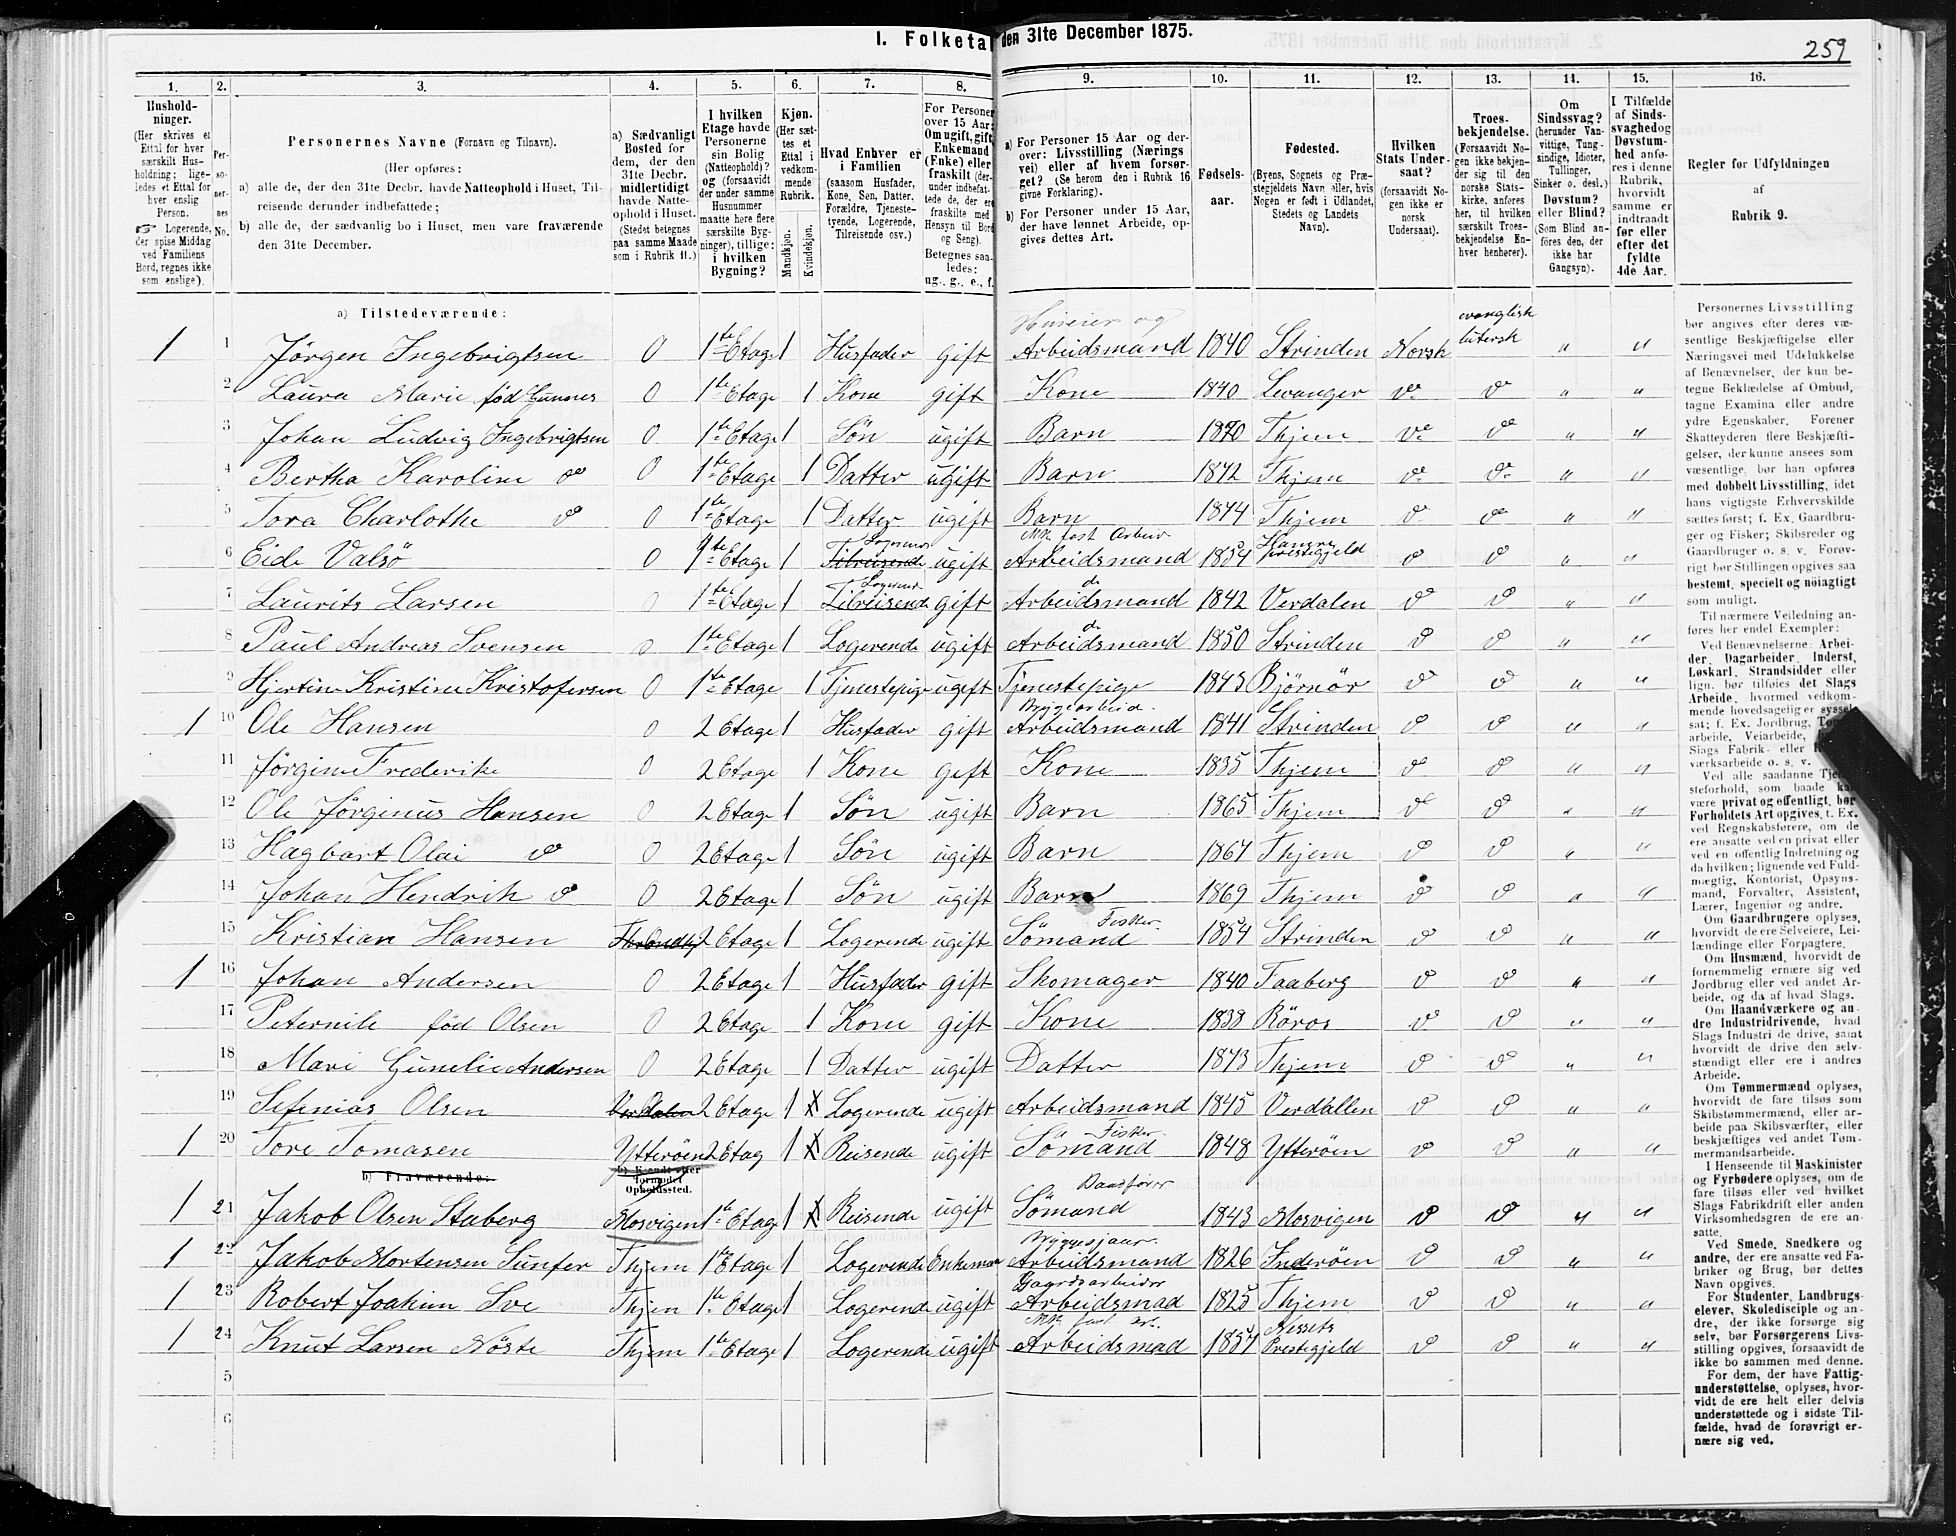 I. Folketal den 31te December 1875.
259
1. 2. 3. 4. 5. 6. 7. 8. 9. 10. 11. 12. 13. 14. 15. 16.
Hushold-
ninger.
(Her skrives et
Ettal for hver
særskilt Hus-
holdning; lige-
ledes et Ettal for
hver enslig
Person.
☞ Logerende,
der spise Middag
ved Familiens
Bord, regnes ikke
som enslige).
Per-
so-
ner-
nes
No.
Personernes Navne (Fornavn og Tilnavn).
(Her opføres:
a) alle de, der den 31te Decbr. havde Natteophold i Huset, Til-
reisende derunder indbefattede;
b) alle de, der sædvanlig bo i Huset, men vare fraværende
den 31te December.
a) Sædvanligt
Bosted for
dem, der den
31te Decbr.
midlertidigt
havde Natte-
ophold i Huset.
(Stedet betegnes
paa samme Maade
som i Rubrik 11.)
I hvilken
Etage havde
Personerne
sin Bolig
(Natteophold)?
og (forsaavidt
der under samme
Husnummer
maatte høre flere
særskilte Byg-
ninger), tillige:
i hvilken
Bygning?
Kjøn.
(Her sæt-
tes et
Ettal i
vedkom-
mende
Rubrik.
Mandkjøn.
Kvindekjøn.
Hvad Enhver er
i Familien
(saasom Husfader,
Kone, Søn, Datter,
Forældre, Tjeneste-
tyende, Logerende,
Tilreisende osv.)
For Personer
over 15 Aar:
Om ugift, gift,
Enkemand
(Enke) eller
fraskilt (der-
under indbefat-
tede de, der ere
fraskilte med
Hensyn til Bord
og Seng).
Betegnes saa-
ledes:
ug., g., e., f.
a) For Personer 15 Aar og der-
over: Livsstilling (Nærings
vei) eller af hvem forsør-
get? (Se herom den i Rubrik 16
givne Forklaring).
b) For Personer under 15 Aar,
der have lønnet Arbeide, op-
gives dettes Art.
Fødsels-
aar.
Fødested.
(Byens, Sognets og Præ-
stegjeldets Navn eller, hvis
Nogen er født i Udlandet,
Stedets og Landets
Navn).
Hvilken
Stats Under-
saat?
(forsaavidt No-
gen ikke er
norsk
Undersaat).
Troes-
bekjendelse.
(Forsaavidt No-
gen ikke bekjen-
der sig til den
norske Stats-
kirke, anføres
her, til hvilken
særskilt Troes-
bekjendelse En-
hver henhører).
Om
Sindssvag?
(herunder Van-
vittige, Tung-
sindige, Idioter,
Tullinger,
Sinker o. desl.)
Døvstum?
eller Blind?
(Som Blind an-
føres den, der
ikke har
Gangsyn).
I Tilfælde
af Sinds-
svaghed og
Døvstum-
hed anfø-
res i denne
Rubrik,
hvorvidt
samme er
indtraadt
før eller
efter det
fyldte
4de Aar.
Regler for Udfyldningen
af
Rubrik 9.
a) Tilstedeværende:
1 1 Jörgen Ingebrigtsen 0 1te Etage 1 Husfader gift Huseier og Arbeidsmand 1840 Strinden Norsk evanglisk lutersk " "
2 Laura Marie fød Gunnes 0 1te Etage 1 Kone gift Kone 1840 Levanger do do " "
3 Johan Ludvig Ingebrigtsen 0 1te Etage 1 Sön ugift Barn 1870 Thjem do do " "
4 Bertha Karoline do 0 1te Etage 1 Datter ugift Barn 1872 Thjem do do " "
5 Tora Charlothe do 0 1te Etage 1 Datter ugift Barn 1874 Thjem do do " "
6 Eide Valsö 0 1te Etage 1 Tilreisende Logerende ugift Arbeidsmand 1854 prestegjeld do do " "
7 Laurits Larsen 0 1te Etage 1 Tilreisende Logerende gift do Arbeidsmand 1842 Verdalen do do " "
8 Paul Andreas Svensen 0 1te Etage 1 Logerende ugift do Arbeidsmand 1850 Strinden do do " "
9 Hjertine Kristine Kristofersen 0 1te Etage 1 Tjenestepige ugift Tjenestepige 1843 Bjørnör do do " "
1 10 Ole Hansen 0 2 Etage 1 Husfader gift Byggearbeid. Arbeidsmand 1841 Strinden do do " "
11 Jörgine Frederike 0 2 Etage 1 Kone gift Kone 1835 Thjem do do " "
12 Ole Jörginus Hansen 0 2 Etage 1 Sön ugift Barn 1865 Thjem do do " "
13 Hagbart Olai do 0 2 Etage 1 Sön ugift Barn 1867 Thjem do do " "
14 Johan Hendrik do 0 2 Etage 1 Sön ugift Barn 1869 Thjem do do " "
15 Kristian Hansen 2 Etage 1 Logerende ugift Fisker. Sömand 1854 Strinden do do " "
1 16 Johan Andersen 0 2 Etage 1 Husfader gift Skomager 1840 Faaberg do do " "
17 Peternile fød Olsen 0 2 Etage 1 Kone gift Kone 1838 Röros do do " "
18 Mari Gunelie Andersen 0 2 Etage 1 Datter ugift Datter 1873 Thjem do do " "
19 Sefenias Olsen Verdalen 2 Etage 1 Logerende ugift Arbeidsmand 1845 Verdallen do do " "
1 20 Tore Tomasen Ytteröen 2 Etag 1 Reisende ugift Fisker. Sömand 1848 Ytteröen do do " "
b) Fraværende:
b) Kjendt eller
formodet
Opholdssted.
1 21 Jakob Olsen Staberg Mosvigen 1te Etage 1 Reisende ugift Baadfører Sömand 1843 Mosvigen do do " "
1 22 Jakob Mortensen Sunfer Thjem 1te Etage 1 Logerende Enkeman Arbeidsmand 1826 Inderöen do do " "
1 23 Robert Joakim Sve Thjem 1te Etage 1 Logerende ugift Gaardsarbeider Arbeidsmad 1825 Thjem do do " "
1 24 Knut Larsen Nöste Thjem 1te Etage 1 Logerende ugift Arbeidsmad 1857 Nessets Prestigjeld do do " "
5
6
Personernes Livsstilling
bør angives efter deres væ-
sentlige Beskjæftigelse eller
Næringsvei med Udelukkelse
af Benævnelser, der kun be-
tegne Beklædelse af Ombud,
tagne Examina eller andre
ydre Egenskaber. Forener
Skatteyderen flere Beskjæfti-
gelser, der kunne ansees som
væsentlige, bør han opføres
med dobbelt Livsstilling, idet
hans vigtigste Erhvervskilde
sættes først; f. Ex. Gaardbru-
ger og Fisker; Skibsreder og
Gaardbruger o. s. v. Forøv-
rigt bør Stillingen opgives saa
bestemt, specielt og nøiagtigt
som muligt.
Til nærmere Veiledning an-
føres her endel Exempler:
Ved Benævnelserne: Arbei-
der, Dagarbeider, Inderst,
Løskarl, Strandsidder eller
lign. bør tilføies det Slags
Arbeide, hvormed vedkom-
mende hovedsagelig er syssel-
sat; f. Ex. Jordbrug,
arbeide, Veiarbeide,
Slags Fabrik- eller
værksarbeide o. s. v.
Ved alle saadanne Tje
steforhold, som baade
være privat og offentligt, bør
Forholdets Art opgives, t. Ex.
ved Regnskabsførere, om de
ere ansatte ved en privat eller
ved en offentlig Indretning og
da hvilken; lignende ved Fuld-
mægtig, Kontorist, Opsyns-
mand, Forvalter, Assistent,
Lærer, Ingeniør og andre.
Om Gaardbrugere oplyses,
hvorvidt de ere Selveiere, Lei-
lændinge eller Forpagtere.
Om Husmænd, hvorvidt de
fornemmelig ernære sig ved
Jordbrug eller ved andet Ar-
beide, og da af hvad Slags.
Om Haandværkere og an-
dre Industridrivende, hvad
Slags Industri de drive, samt
hvorvidt de drive den selv-
stændigt eller ere i andres
Arbeide.
Om Tømmermænd oplyses,
hvorvidt de fare tilsøs som
Skibstømmermænd, eller ar-
beide paa Skibsværfter, eller
beskjæftiges ved andet Tøm-
mermandsarbeide.
I Henseende til Maskinister
og Fyrbødere oplyses, om de
fare tilsøs eller ved hvilket
Slags Fabrikdrift eller anden
Virksomhedsgren de ere an-
satte.
Ved Smede, Snedkere og
andre, der ere ansatte ved Fa-
briker og Brug, bør dettes
Navn opgives.
For Studenter, Landbrugs-
elever, Skoledisciple og an-
dre, der ikke forsørge sig
selv, bør Forsørgerens Livs-
stilling opgives, forsaavidt de
ikke bo sammen med denne.
For dem, der have Fattig-
understøttelse, oplyses, hvor-
vidt de ere helt eller delvis
understøttede og i sidste Til-
fælde, hvad de forøvrigt er-
nære sig ved.